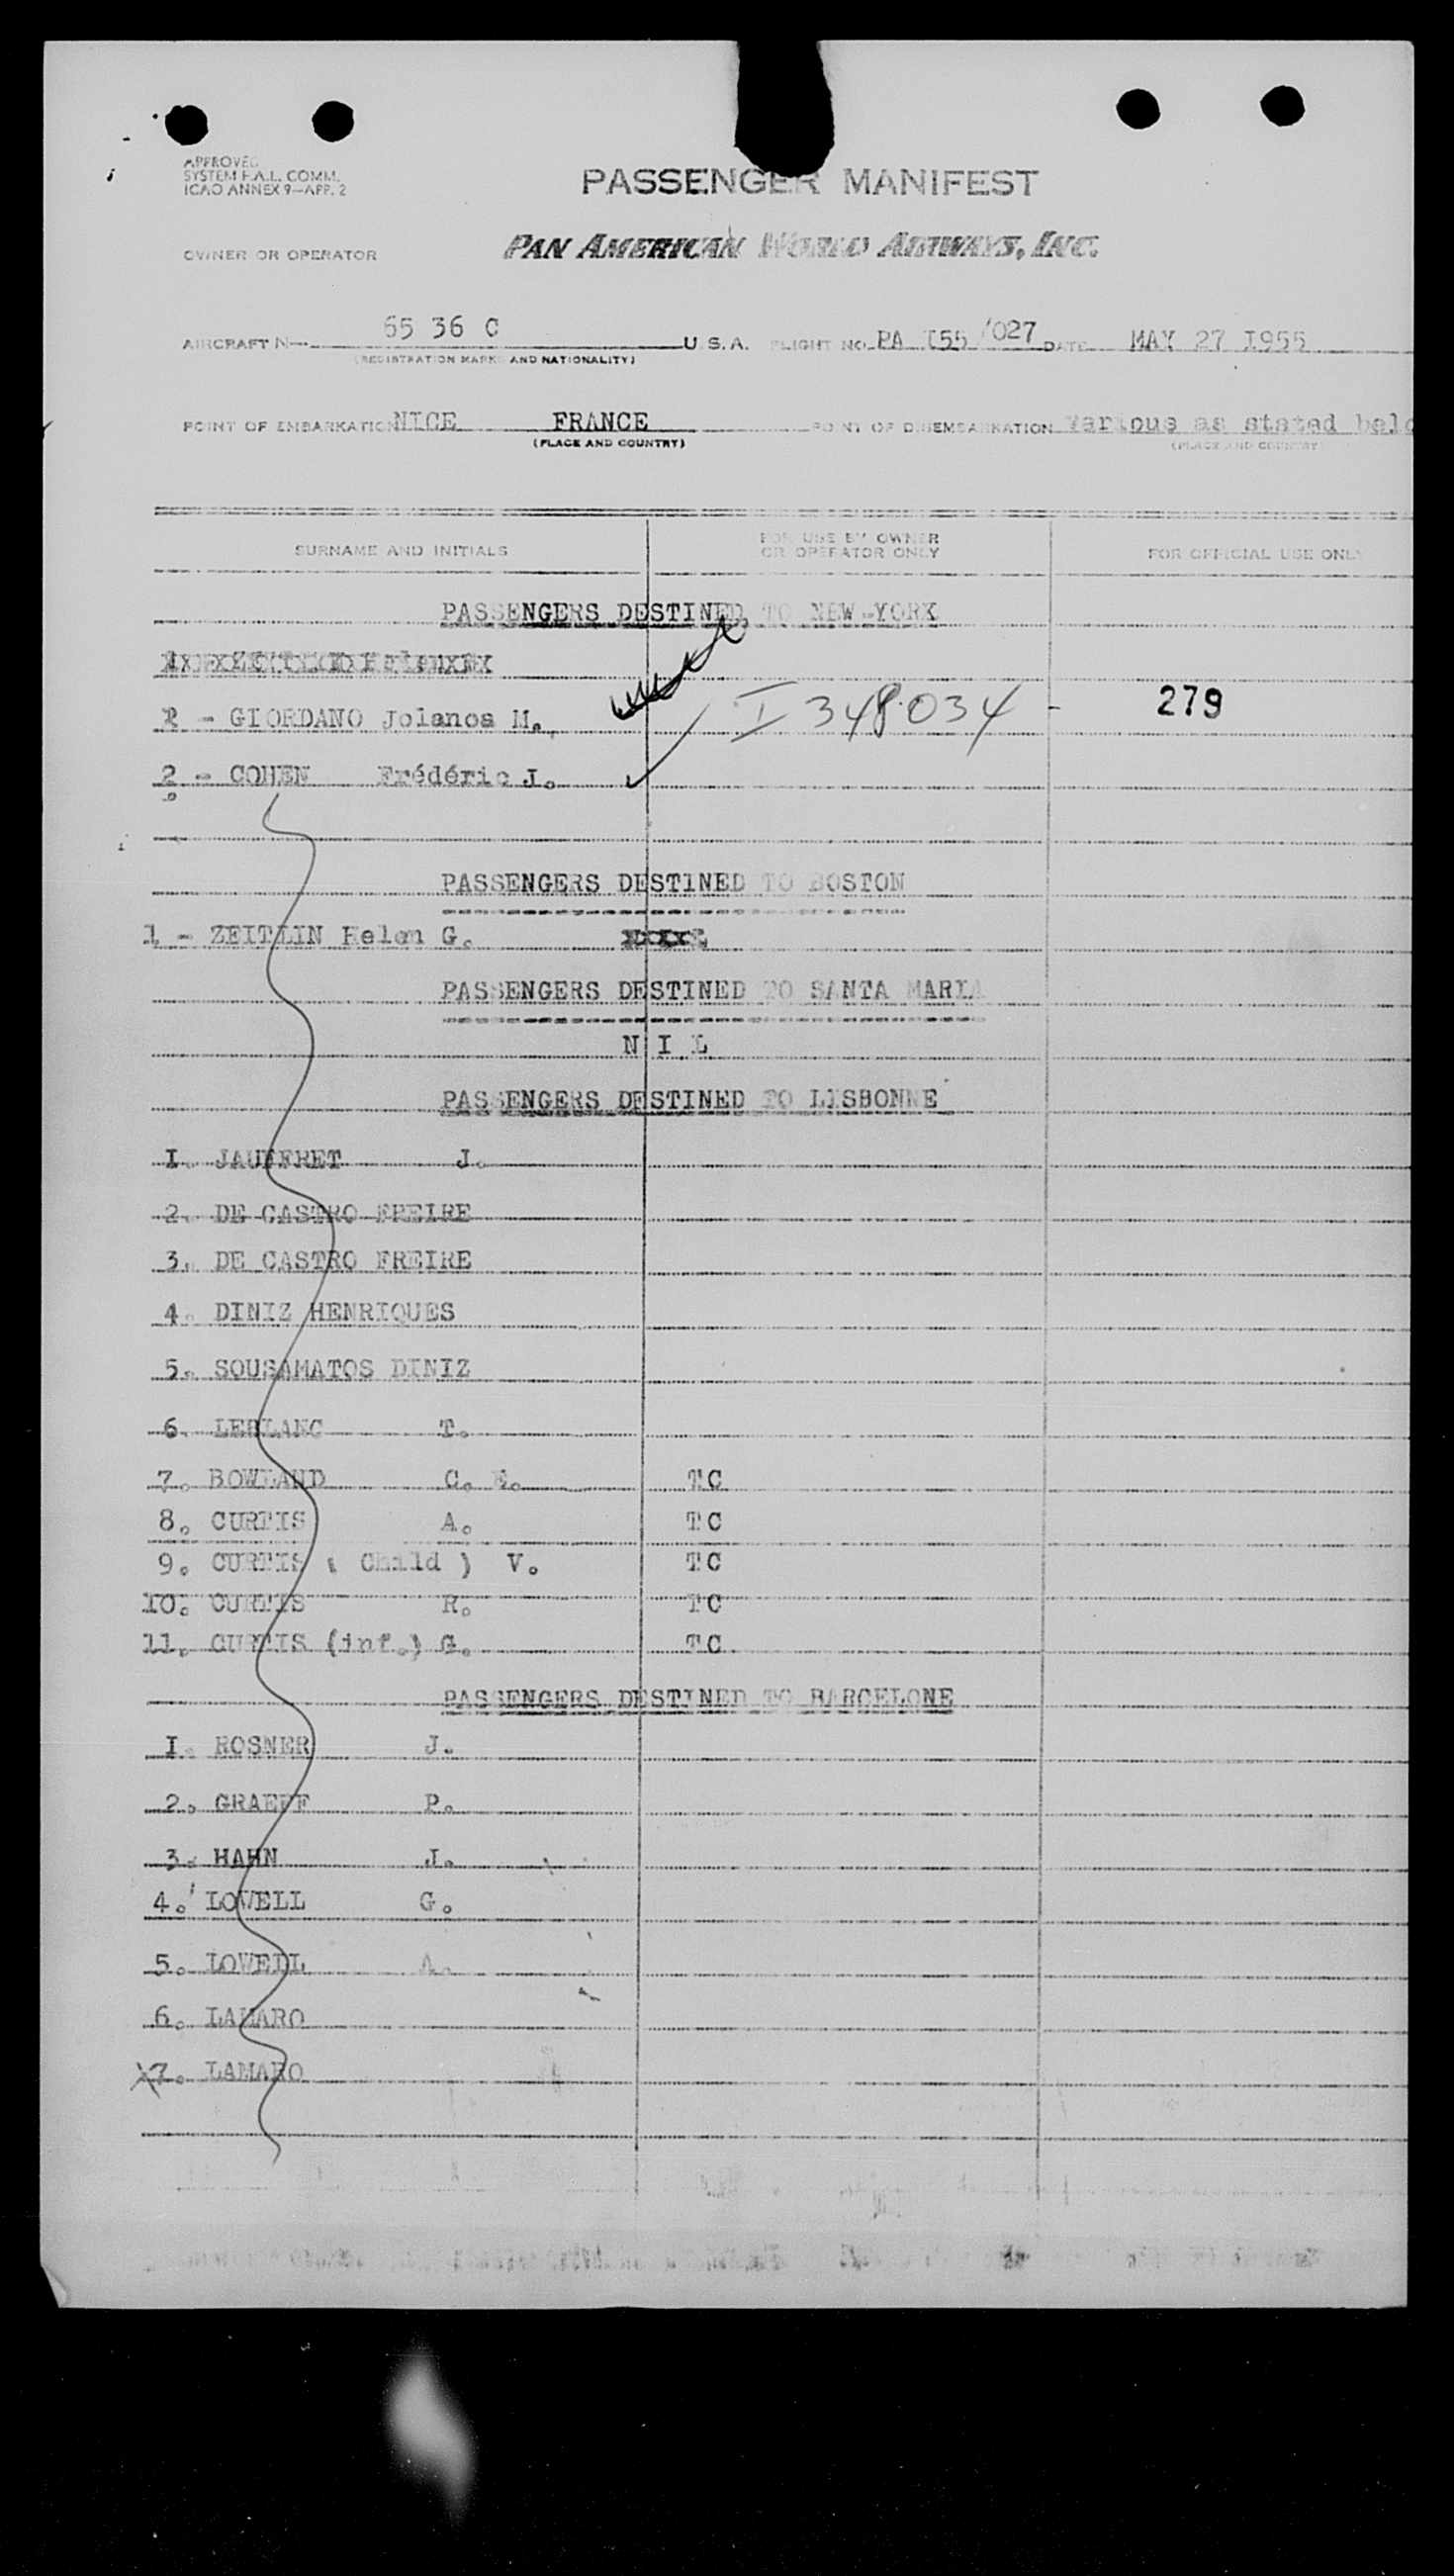 APPROVED
SYSTEM F.A.L. COMM.
ICAO ANNEX 9—APP. 2
PASSENGER MANIFEST
OWNER OR OPERATOR PAN AMERICAN WORLD AIRWAYS, INC.
AIRCRAFT N— 65 36 C U.S.A. FLIGHT NO. PA I55 /027 DATE MAY 27 I955
(REGISTRATION MARKS AND NATIONALITY)
POINT OF EMBARKATION NICE FRANCE POINT OF DISEMBARKATION Various as stated belo
(PLACE AND COUNTRY) (PLACE AND COUNTRY)
SURNAME AND INITIALS FOR USE BY OWNER OR OPERATOR ONLY FOR OFFICIAL USE ONLY
PASSENGERS DESTINED TO NEW-YORK
- GIORDANO Jolanos M. I 348034 - 279
2 - COHEN Frédéric J.
PASSENGERS DESTINED TO BOSTON
1 - ZEITLIN Helen G.
PASSENGERS DESTINED TO SANTA MARIA
N I L
PASSENGERS DESTINED TO LISBONNE
I. JAUFFRET J.
2. DE CASTRO FREIRE
3. DE CASTRO FREIRE
4. DINIZ HENRIQUES
5. SOUSAMATOS DINIZ
6. LEBLANC T.
7. BOWLAND C. E. TC
8. CURTIS A. TC
9. CURTIS ( Child ) V. TC
10. CURTIS R. TC
11. CURTIS (inf.) G. TC
PASSENGERS DESTINED TO BARCELONE
I. ROSNER J.
2. GRAEFF P.
3. HAHN J.
4. LOVELL G.
5. LOVELL A.
6. LAMARO
7. LAMARO